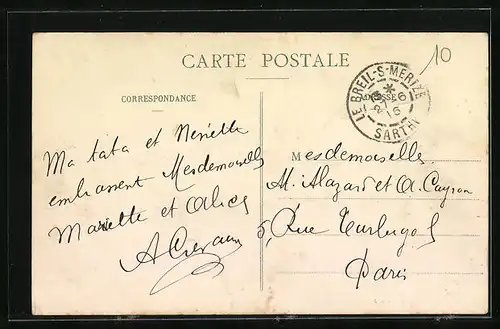 CARTE POSTALE
10
CORRESPONDANCE
ADRESSE
LE BREIL-S-MERIZE
SARTHE
Ma tata et
embrassent Mesdemoiselles
Mariette et Alice
Mesdemoiselles
M. Alazard et A. Cayron
5, Rue Turbigo
Paris